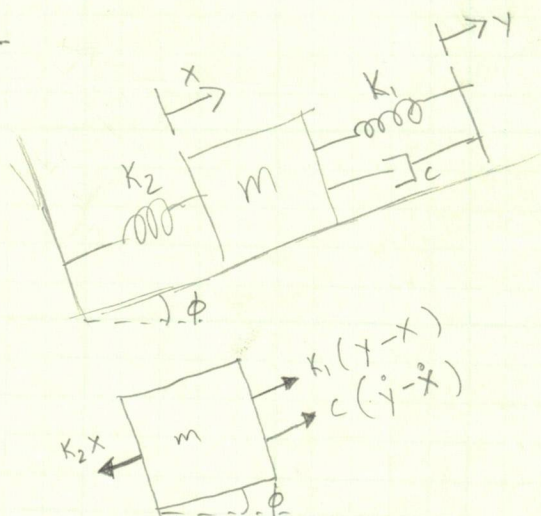 Y
X
K₁
K₂
m
c
ϕ
K₁(Y-X)
c(ẏ-ẋ)
K₂X
m
ϕ